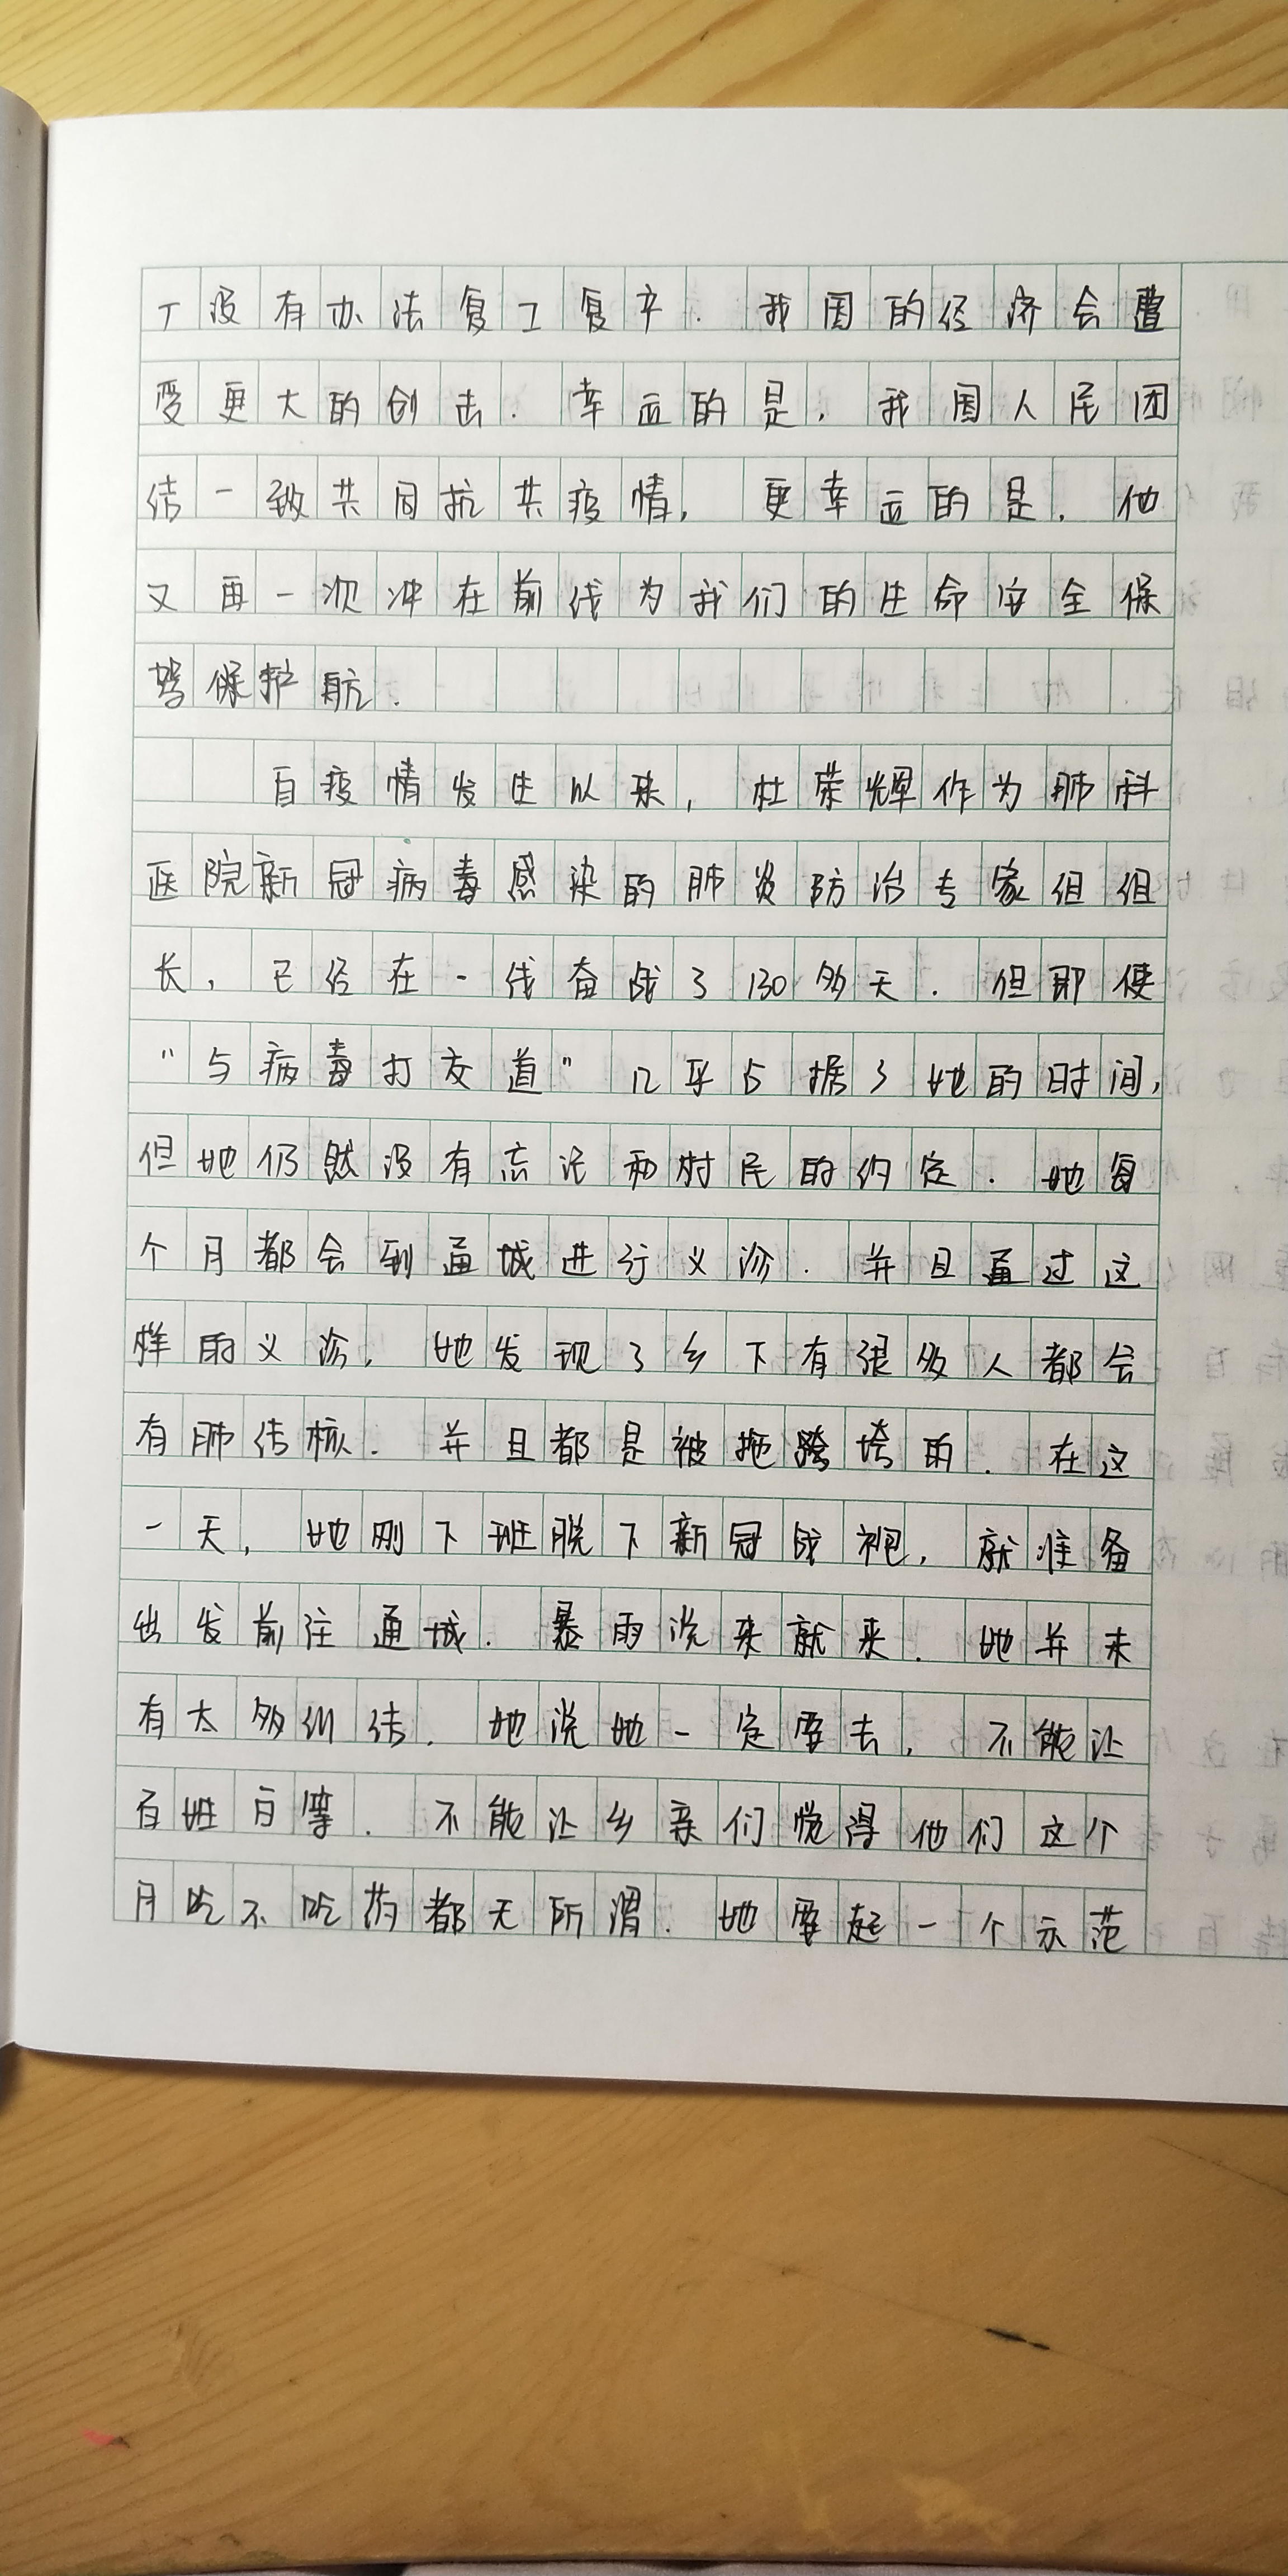 丁没有办法复工复产.我国的经济会遭
受更大的创击.幸运的是,我国人民团
结一致共同抗共疫情,更幸运的是,他
又再一次冲在前线为我们的生命安全保
驾保护航.
自疫情发生以来,杜荣辉作为肺科
医院新冠病毒感染的肺炎防治专家组组
长,已经在一线奋战了130多天.但那使
"与病毒打交道"几乎占据了她的时间,
但她仍然没有忘记和村民的约定.她每
个月都会到通城进行义诊.并且通过这
样的义诊,她发现了乡下有很多人都会
有肺结核.并且都是被拖跨垮的.在这
一天,她刚下班脱下新冠战袍,就准备
出发前往通城.暴雨说来就来.她并未
有太多纠结.她说她一定要去,不能让
百姓百等.不能让乡亲们觉得他们这个
月吃不吃药都无所谓.她要起一个示范